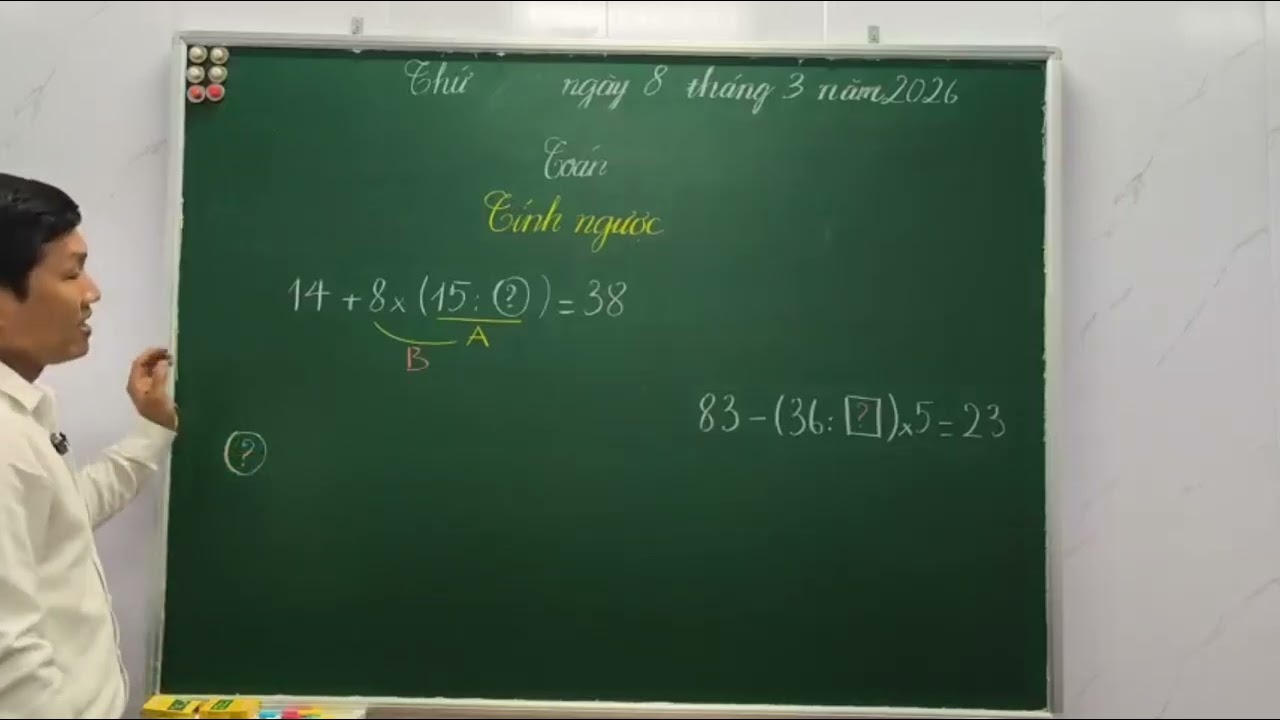 Thứ ngày 8 tháng 3 năm 2026
Toán
Tính ngược
14 + 8 x (15 : ?) = 38
A
B
83 - (36 : ?) x 5 = 23
?